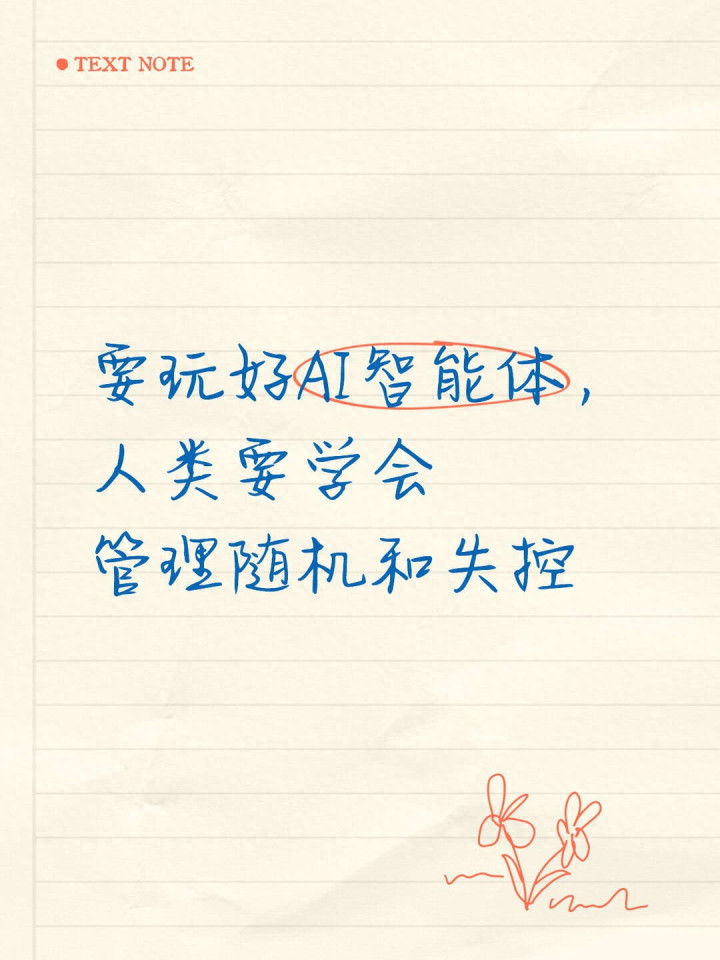 TEXT NOTE
要玩好AI智能体，
人类要学会
管理随机和失控